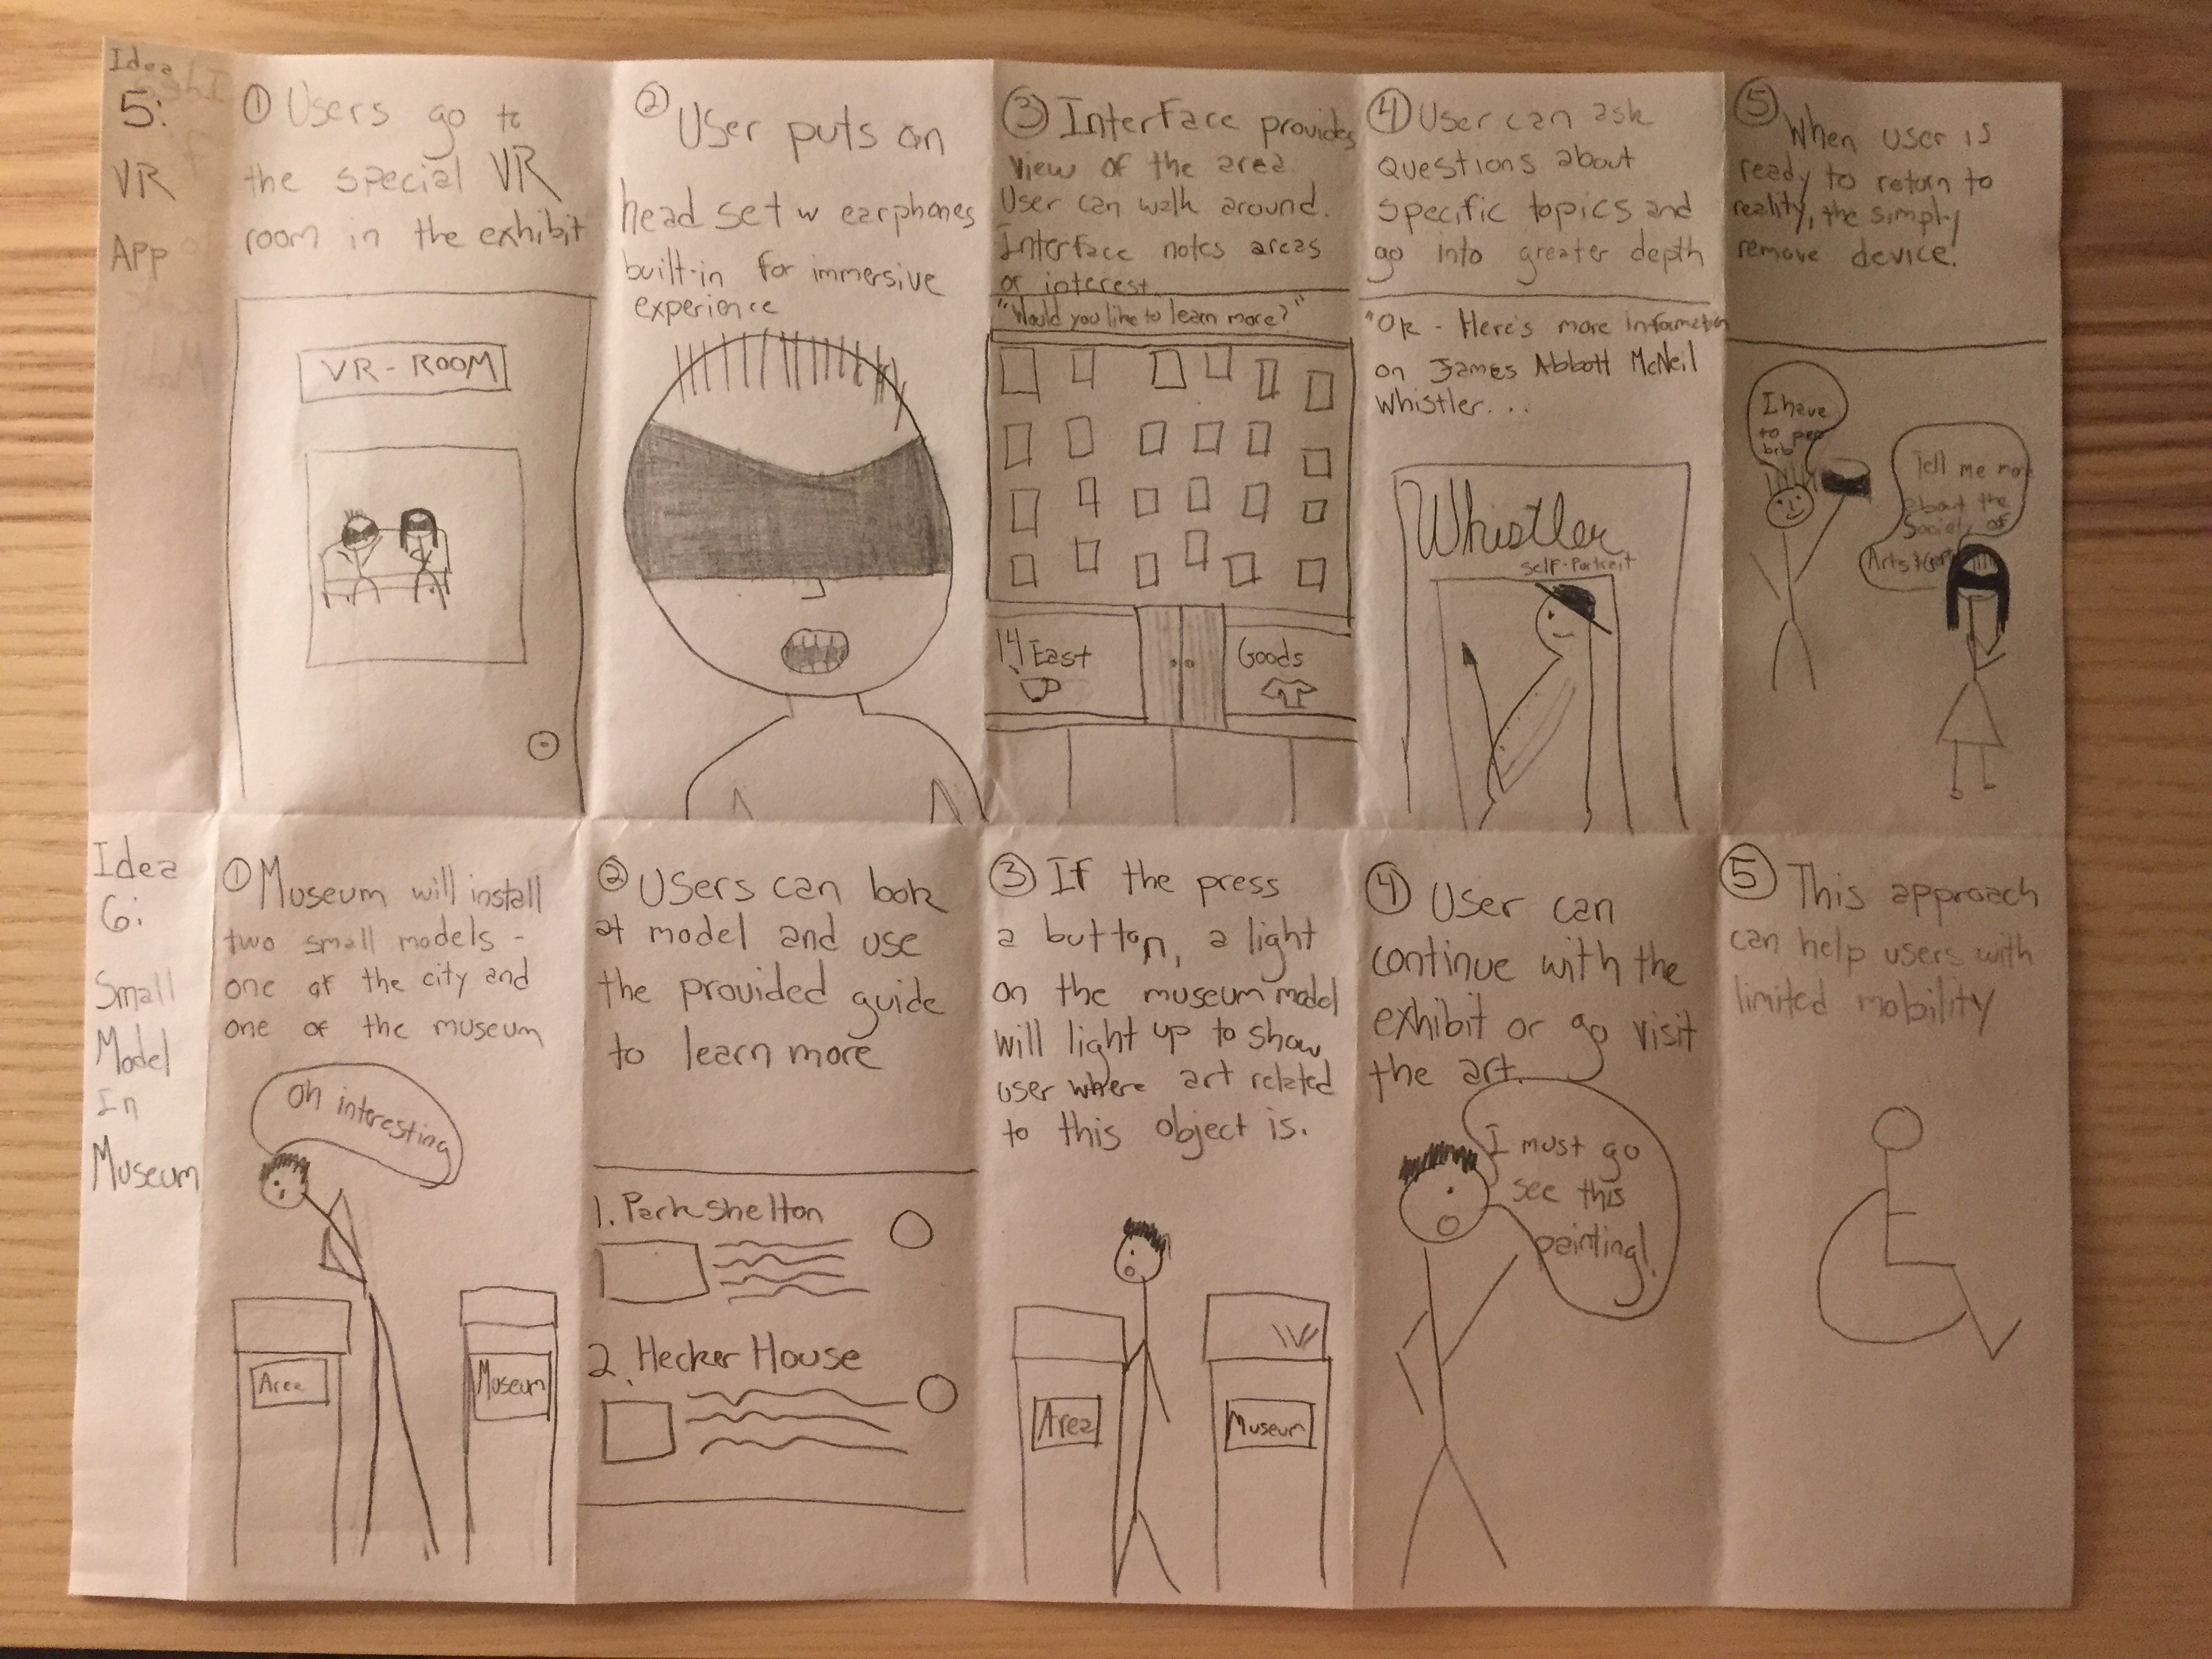 Idea
5:
VR
App
① Users go to
the special VR
room in the exhibit
VR-ROOM
② User puts on
head set w earphones
built-in for immersive
experience
③ Interface provides
view of the area
User can walk around.
Interface notes areas
of interest.
"Would you like to learn more?"
14 East
Goods
④ User can ask
questions about
specific topics and
go into greater depth
"Ok - Here's more information
on James Abbott McNeil
Whistler...
Whistler
self-Portrait
⑤ When user is
ready to return to
reality, the simply
remove device.
I have
to pee
brb
Tell me more
about the
Society of
Arts &
Idea
6:
Small
Model
In
Museum
① Museum will install
two small models -
one of the city and
one of the museum
Oh interesting
Area
Museum
② Users can look
at model and use
the provided guide
to learn more
1. Park Shelton
2. Hecker House
③ If the press
a button, a light
on the museum model
will light up to show
user where art related
to this object is.
Area
Museum
④ User can
continue with the
exhibit or go visit
the art.
I must go
see this
painting!
⑤ This approach
can help users with
limited mobility